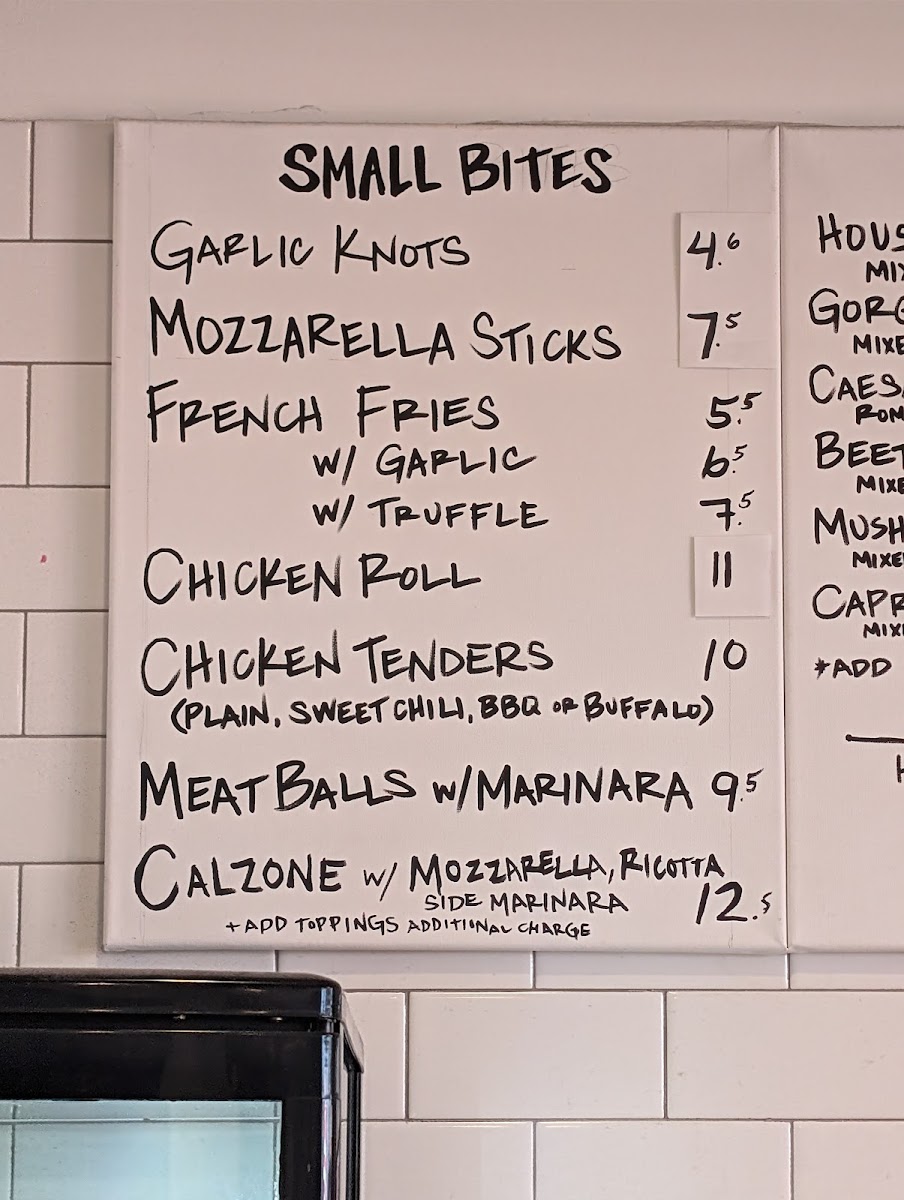 SMALL BITES
GARLIC KNOTS 4.6
MOZZARELLA STICKS 7.5
FRENCH FRIES 5.5
W/ GARLIC 6.5
W/ TRUFFLE 7.5
CHICKEN ROLL 11
CHICKEN TENDERS 10
(PLAIN, SWEET CHILI, BBQ OR BUFFALO)
MEATBALLS W/MARINARA 9.5
CALZONE W/ MOZZARELLA, RICOTTA
SIDE MARINARA 12.5
+ADD TOPPINGS ADDITIONAL CHARGE
*ADD